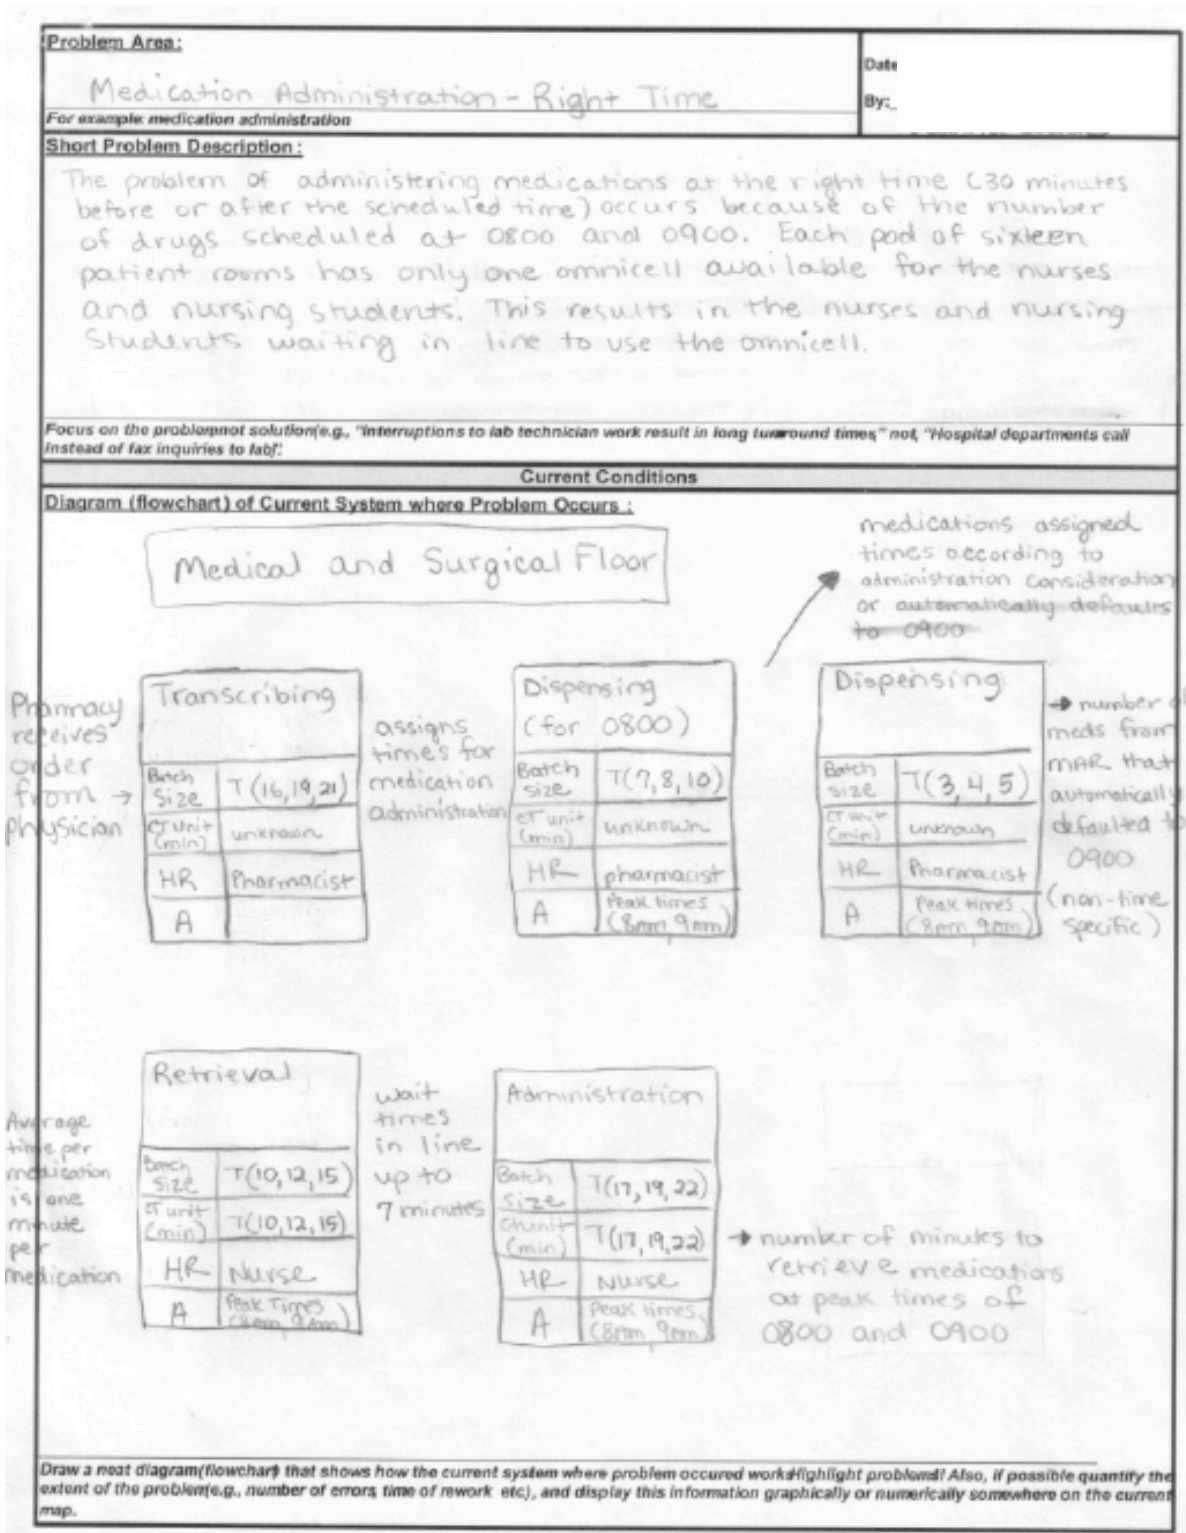 Problem Area:
Medication Administration - Right Time
For example: medication administration
Date
By:
Short Problem Description:
The problem of administering medications at the right time (30 minutes
before or after the scheduled time) occurs because of the number
of drugs scheduled at 0800 and 0900. Each pod of sixteen
patient rooms has only one omnicell available for the nurses
and nursing students. This results in the nurses and nursing
students waiting in line to use the omnicell.
Focus on the problem not solution (e.g., "Interruptions to lab technician work result in long turnaround times," not, "Hospital departments call
instead of fax inquiries to lab".
Current Conditions
Diagram (flowchart) of Current System where Problem Occurs :
Medical and Surgical Floor
medications assigned
times according to
administration consideration
or automatically defaults
to 0900
Pharmacy
receives
order
from →
physician
Transcribing
Batch Size T(16,19,21)
CT unit (min) unknown
HR Pharmacist
A
assigns
times for
medication
administration
Dispensing
(for 0800)
Batch size T(7,8,10)
CT unit (min) unknown
HR pharmacist
A Peak times (8am, 9am)
Dispensing
Batch size T(3,4,5)
CT unit (min) unknown
HR Pharmacist
A Peak times (8am, 9am)
→ number of
meds from
MAR that
automatically
defaulted to
0900
(non-time
specific)
Average
time per
medication
is one
minute
per
medication
Retrieval
Batch size T(10,12,15)
CT unit (min) T(10,12,15)
HR Nurse
A Peak Times (8am, 9am)
wait
times
in line
up to
7 minutes
Administration
Batch size T(17,19,22)
CT unit (min) T(17,19,22)
HR Nurse
A Peak times (8am, 9am)
→ number of minutes to
retrieve medications
at peak times of
0800 and 0900
Draw a neat diagram (flowchart) that shows how the current system where problem occured works. Highlight problems! Also, if possible quantify the
extent of the problem (e.g., number of errors, time of rework etc), and display this information graphically or numerically somewhere on the current
map.